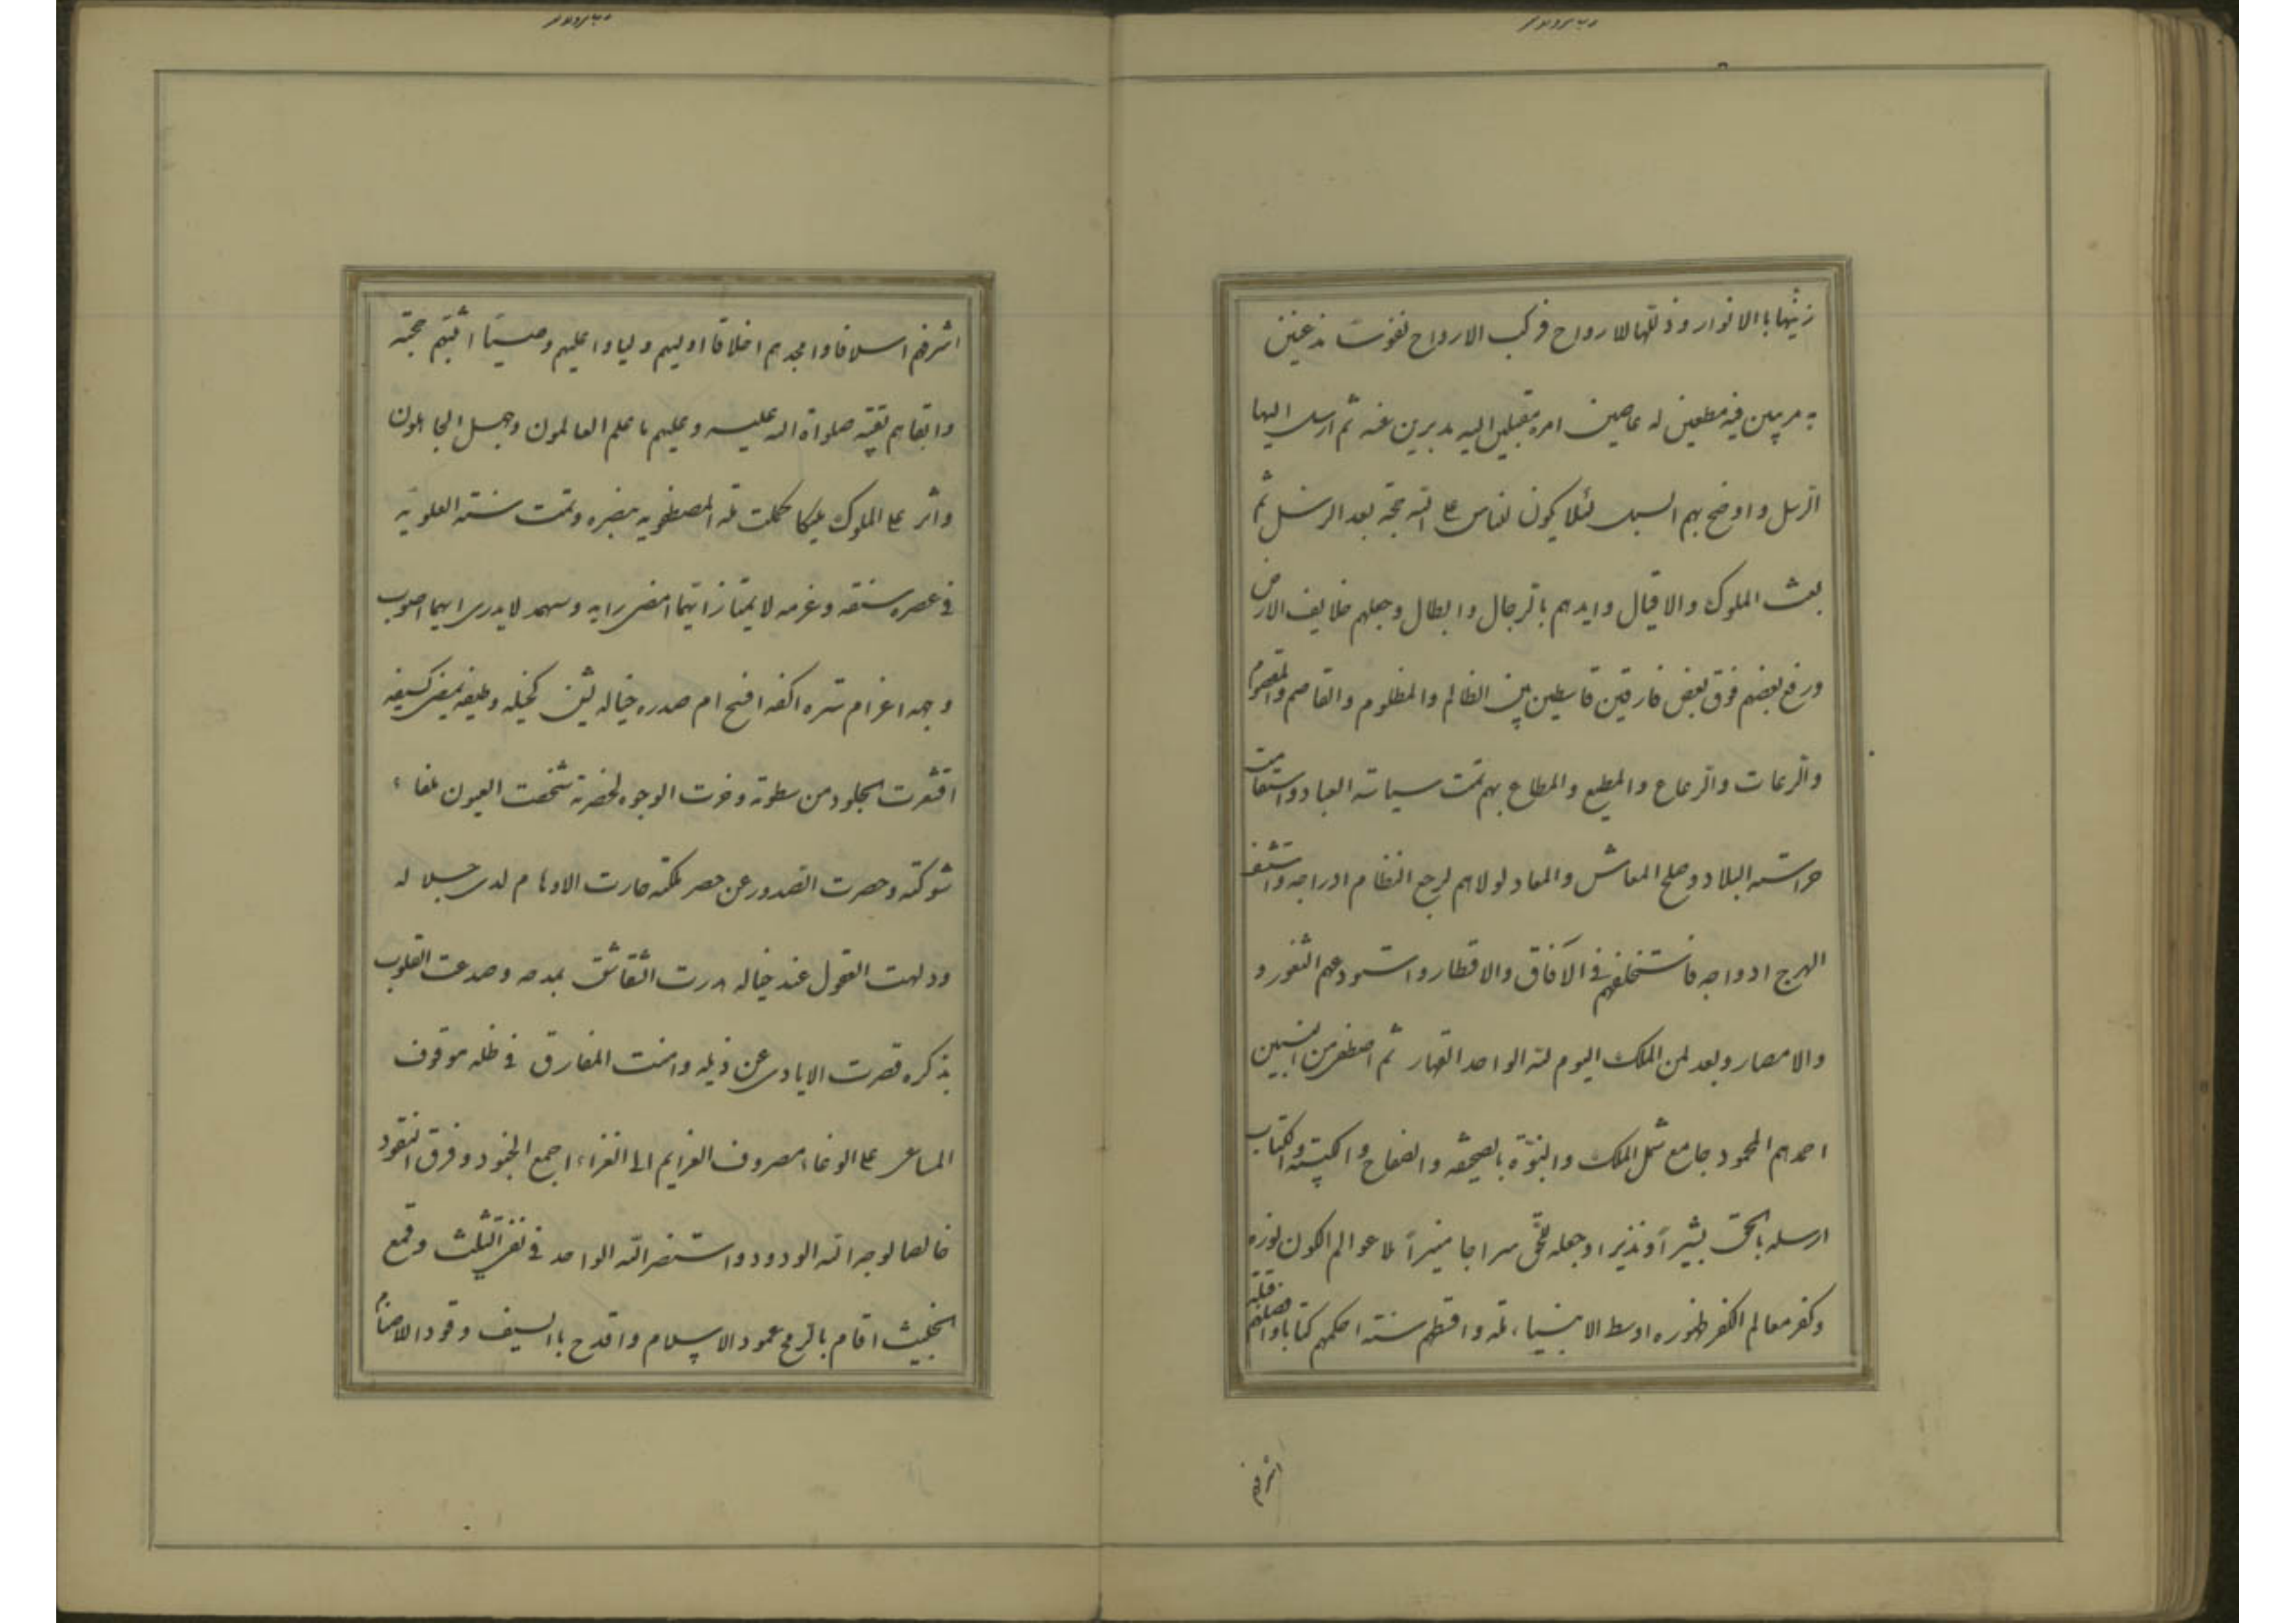 زينها باالانوار وذللها للارواح فركب الارواح نفوسا مذعنين
به مريبين فيه مطيعين له عاصين امره مقبلين اليه مدبرين عنه ثم ارسل اليها
الرسل واوضح بهم السبل لئلا يكون للناس على الله حجة بعد الرسل ثم
بعث الملوك والاقيال وايدهم بالرجال وابطال وجعلهم خلايف الارض
ورفع بعضهم فوق بعض فارقين قاسطين بين الظالم والمظلوم والقاصم والمقصوم
والرعات والرعاع والمطيع والمطاع بهم تمت سياسة العباد واستقامت
حراسته البلاد وصلح المعاش والمعاد لولاهم لرجع النظام ادراجه
الهرج ادواجه فاستخلفهم في الآفاق والاقطار واستودعهم الثغور و
والامصار وبعد لمن الملك اليوم لله الواحد القهار ثم اصطفى من النبيين
احمدهم المحمود جامع شمل الملك والنبوة بالصحيفه والصفاح والكتيبته والكتاب
ارسله بالحق بشيرا ونذيرا وجعله للحق سراجا منيرا ملا عوالم الكون نوره
وكفر معالم الكفر ظهوره اوسط الانبياء مله واقسطهم سنته احكمهم كتابا
اشرفهم
اشرفهم اسلافا وامجدهم اخلاقا اوليهم وليا واعليهم وصيا اثبتهم حجته
وابقاهم بقيه صلواة الله عليه وعليهم ما علم العالمون وجهل الجاهلون
واثر على الملوك مليكا كملت مله المصطفويه بنصره وتمت سنته العلويه
في عصره سيفه وعزمه لا يمتاز ايتهما امضى رايه وسهمه لا يدرى ايهما اصوب
وجهه اغر ام ثغره اكفه افسح ام صدره خياله كخيله وطيفه يمضى كسيفه
اقشعرت الجلود من سطوته وخرت الوجوه لحضرته شخصت العيون تلقاء
شوكته وحصرت الصدور عن حصر ملكته حارت الاوهام لدى جلاله
ودلهت العقول عند خياله درت الشقاشق بمدحه وصدعت القلوب
بذكره قصرت الايادى عن ذيله وامنت المفارق في ظله موقوف
المساعى على الوغاء مصروف العزايم الى الغزاء اجمع الجنود وفرق النقود
خالصا لوجه الله الودود واستنصر الله الواحد في نفى التثليث وقمع
الخبيث اقام بالرمح عمود الاسلام واقدح باالسيف وقود الاصنام